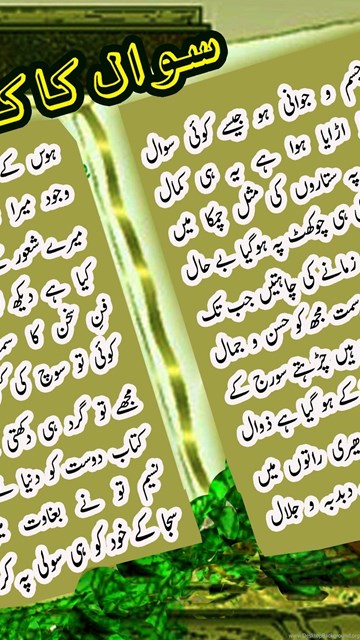 سوال کا ک
جسم و جوانی ہو جیسے کوئی سوال
اڑایا ہوا ہے یہ ہی کمال
پہ ستاروں کی مثل چمکا میں
ہی چوکھٹ پہ ہوگیا بے حال
زمانے کی چاہتیں جب تک
مجھ کو حسن و جمال
میں چڑھتے سورج کے
کے ہو گیا ہے ذوال
راتوں میں
دبدبہ و جلال
ہوس کے
وجود میرا
میرے شعور
کیا ہے دیکھ
فن سخن کا
کوئی تو سوچ کی
مجھے تو گرد ہی دکھتی
کتاب دوست کو دنیا
نسیم تو نے بغاوت
سجا کے خود کو ہی سولی پہ